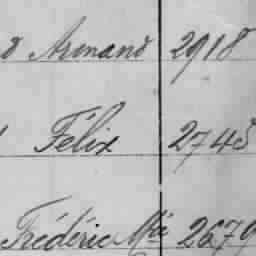 d Armand 2918
Félix 2745
Frédéric Mie 2679